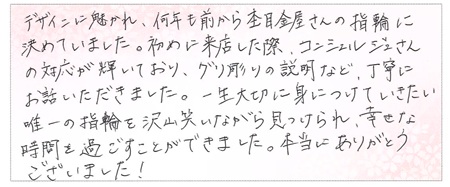 デザインに魅かれ、何年も前から杢目金屋さんの指輪に
決めていました。初めに来店した際、コンシェルジュさん
の対応が輝いており、グリ彫りの説明など、丁寧に
お話いただきました。一生大切に身につけていきたい
唯一の指輪を沢山笑いながら見つけられ、幸せな
時間を過ごすことができました。本当にありがとう
ございました!